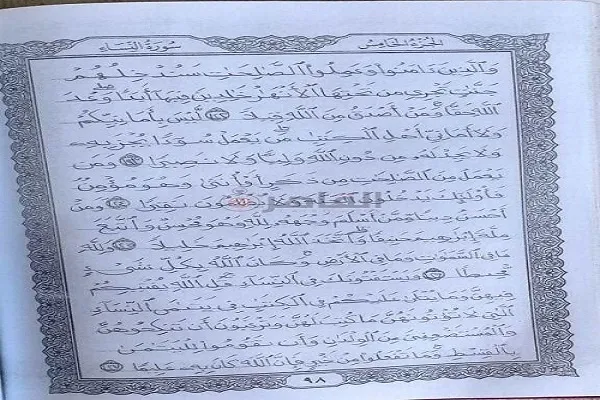 الجزء الخامس
سورة النساء
والذين ءامنوا وعملوا الصلحت سندخلهم
جنت تجرى من تحتها الأنهر خلدين فيها أبدا وعد
الله حقا ومن أصدق من الله قيلا ١٢٢ ليس بأمانيكم
ولا أمانى أهل الكتب من يعمل سوءا يجز به
ولا يجد له من دون الله وليا ولا نصيرا ١٢٣ ومن
يعمل من الصلحت من ذكر أو أنثى وهو مؤمن
فأولئك يدخلون نقيرا ١٢٤ ومن
أحسن دينا ممن أسلم وجهه لله وهو محسن واتبع
ملة إبرهيم حنيفا واتخذ الله إبرهيم خليلا ١٢٥ ولله
ما فى السموت وما فى الأرض وكان الله بكل شىء
محيطا ١٢٦ ويستفتونك فى النساء قل الله يفتيكم
فيهن وما يتلى عليكم فى الكتب فى يتمى النساء
التى لا تؤتونهن ما كتب لهن وترغبون أن تنكحوهن
والمستضعفين من الولدن وأن تقوموا لليتمى
بالقسط وما تفعلوا من خير فإن الله كان به عليما ١٢٧
٩٨